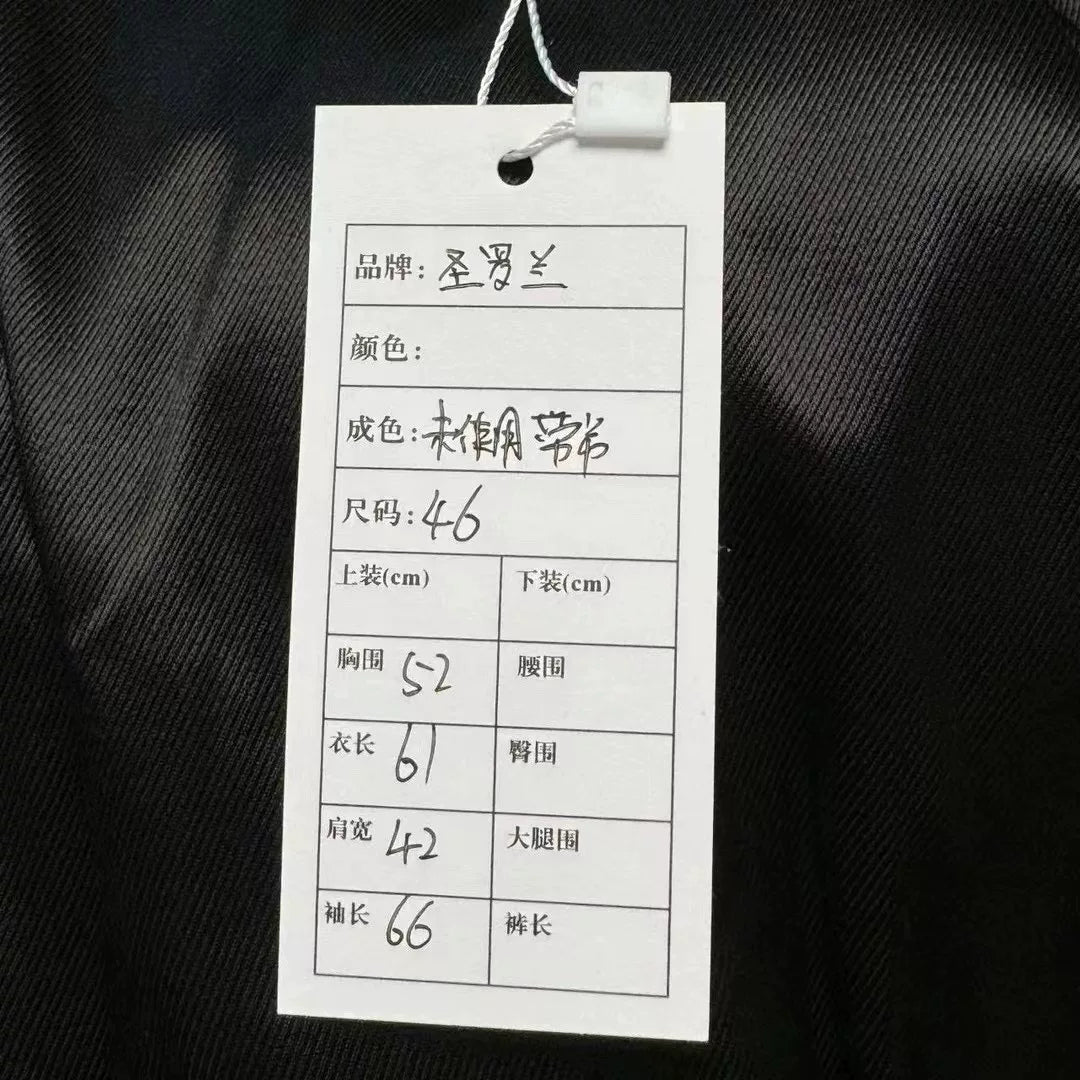 品牌：圣罗兰
颜色：
成色：未使用 带吊
尺码：46
上装(cm) 下装(cm)
胸围 52 腰围
衣长 61 臀围
肩宽 42 大腿围
袖长 66 裤长